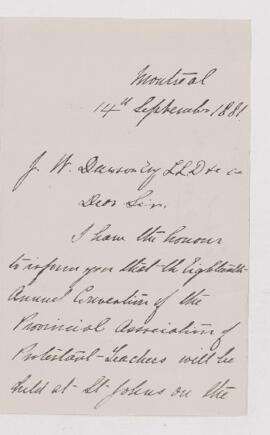 Montreal
14th September 1881
J. W. Dawson Esq LLD &c
Dear Sir.
I have the honour
to inform you that the Eighteenth
Annual Convention of the
Provincial Association of
Protestant Teachers will be
held at St Johns on the